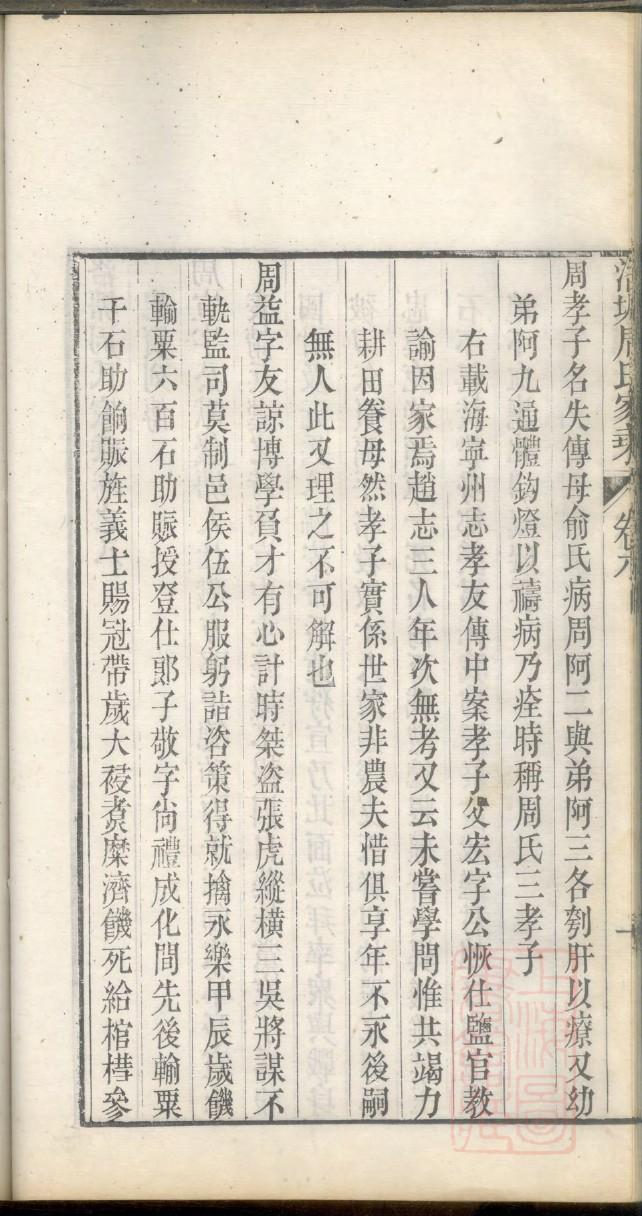 周孝子名失傳母俞氏病周阿二與弟阿三各刳肝以療又幼
弟阿九通體鈎燈以禱病乃痊時稱周氏三孝子
右載海寧州志孝友傳中案孝子父宏字公恢仕鹽官教
諭因家焉趙志三人年次無考又云未嘗學問惟共竭力
耕田養母然孝子實係世家非農夫惜俱享年不永後嗣
無人此又理之不可解也
周益字友諒博學負才有心計時桀盜張虎縱橫三吳將謀不
軌監司莫制邑侯伍公服躬詣咨策得就擒永樂甲辰歲饑
輸粟六百石助賑授登仕郎子敬字尚禮成化間先後輸粟
千石助餉賑旌義士賜冠帶歲大祲煑糜濟饑死給棺槥參
周氏家乘
卷六